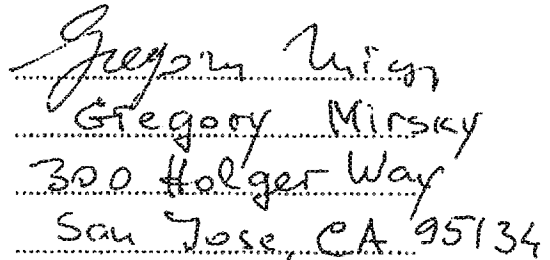 Gregory Mirsky
Gregory Mirsky
300 Holger Way
San Jose, CA 95134